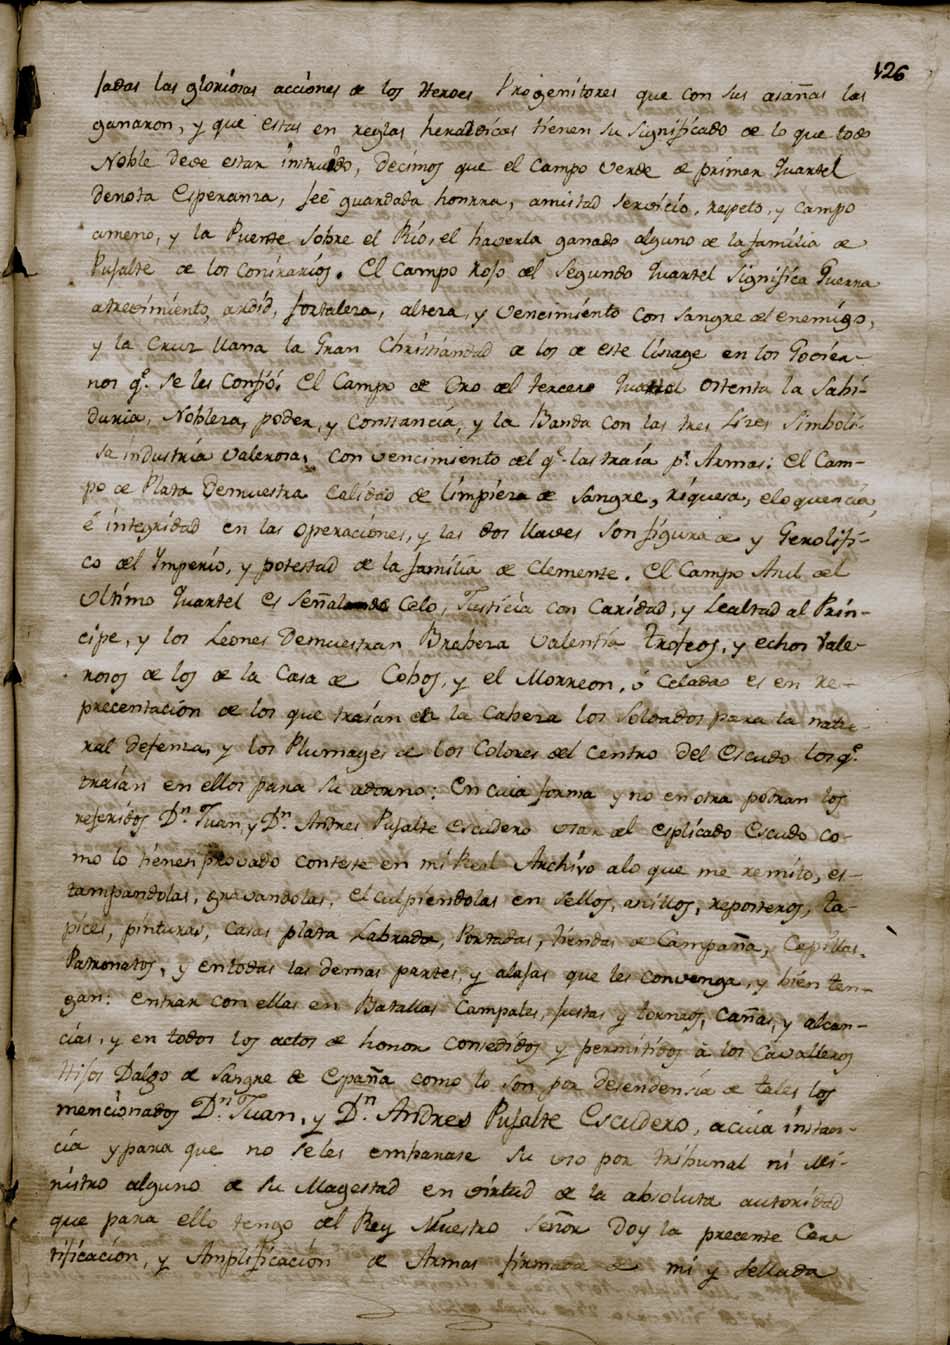 126
sadas las gloriosas acciones de los Heroes Progenitores que con sus asañas las
ganaron, y que estas en reglas heraldicas tienen su significado de lo que todo
Noble deve estar instruido, decimos que el Campo verde de primer Quartel
denota Esperanza, feé guardada honrra, amistad servicio, respeto, y campo
ameno, y la Puente sobre el Rio, el haverla ganado alguno de la familia de
Pujalte de los Contrarios. El Campo Rojo del Segundo Quartel significa Guerra
atrevimiento, ardid, fortaleza, alteza, y vencimiento con sangre del enemigo,
y la Cruz llana la Gran Christiandad de los de este linage en los Govier-
nos q.e se les confió. El Campo de Oro del tercero Quartel ostenta la Sabi-
duria, Nobleza, poder, y Constancia, y la Banda con las tres Lizes Simboli-
sa industria valerosa, con vencimiento del q.e las traia p.r Armas: el Cam-
po de Plata Demuestra Calidad de limpieza de sangre, riquesa, eloquencia,
é integridad en las operaciones, y las dos llaves son figura de y Gerolifi-
co del Imperio, y potestad de la familia de Clemente. El Campo Azul del
Ultimo Quartel es Señal de Celo, Justicia con Caridad, y Lealtad al Prin-
cipe, y los Leones Demuestran Brabeza Valentia trofeos, y echos Vale-
rosos de los de la Casa de Cobos, y el Morreon, ó Celada es en re-
precentacion de los que traian en la Cabeza los Soldados para la natu-
ral defenza, y los Plumages de los Colores del centro Del Escudo los q.e
traian en ellos para su adorno: En cuia forma y no en otra podran los
referidos D.n Juan, y D.n Andres Pujalte Escudero usar del esplicado Escudo co-
mo lo tienen provado conteste en mi Real Archivo alo que me remito, es-
tampandolas, gravandolas, esculpiendolas en sellos, anillos, reposteros, ta-
pices, pinturas, casas plata Labrada, Portadas, tiendas de Campaña, Capillas,
Patronatos, y en todas las demas partes, y alajas que les convenga, y bien ten-
gan: entrar con ellas en Batallas Campales, Justas y torneos, cañas, y alcan-
cias, y en todos los actos de honor consedidos y permitidos á los Cavalleros
Hijos Dalgo de sangre de España como lo son por desendensia de tales los
mencionados D.n Juan, y D.n Andres Pujalte Escudero, a cuia instan-
cia y para que no se les embarase su uso por tribunal ni Mi-
nistro alguno de su Magestad en virtud de la absoluta autoridad
que para ello tengo del Rey Nuestro Señor Doy la precente Cer-
tificacion, y Amplificacion de Armas firmada de mi y sellada